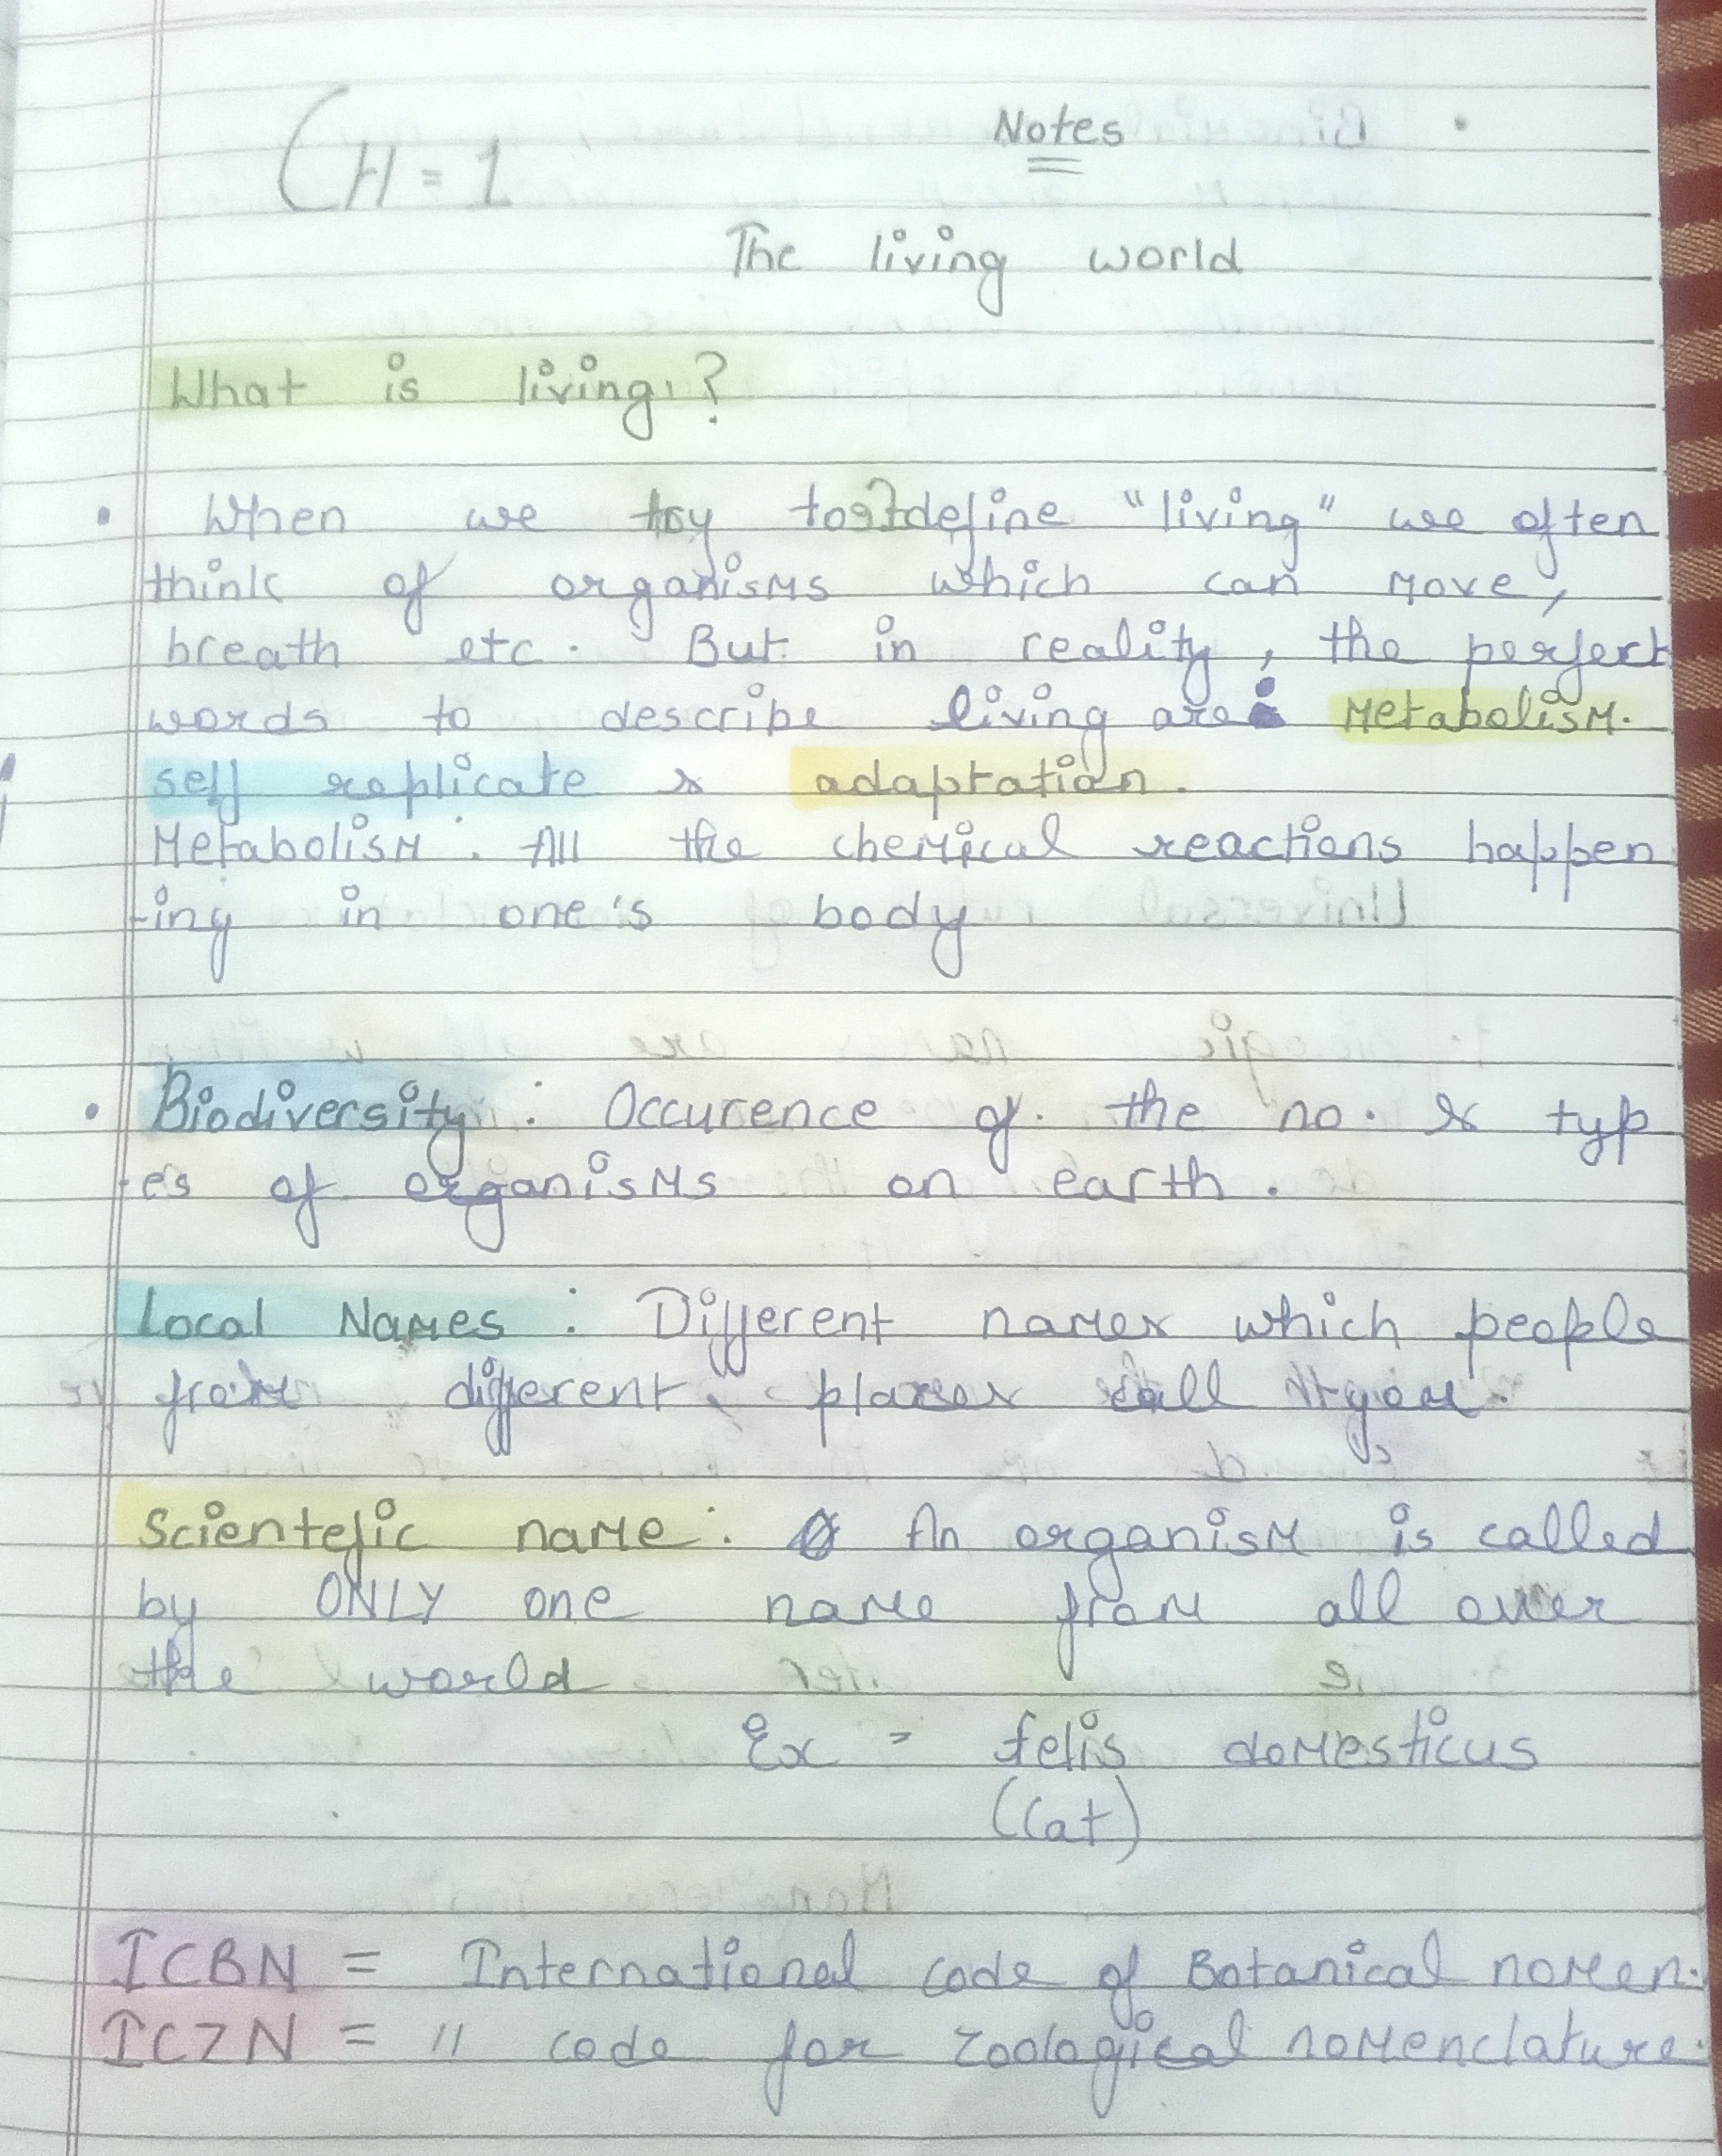 Notes
CH = 1
The living world
What is living ?
• When we try to define "living" we often
think of organisms which can move,
breath etc. But in reality, the perfect
words to describe living are: Metabolism.
self replicate & adaptation.
Metabolism : All the chemical reactions happen
-ing in one's body
• Biodiversity : Occurence of the no. & typ
-es of organisms on earth.
Local Names : Different names which people
from different places call
Scientefic name : An organism is called
by ONLY one name from all over
the world
Ex = felis domesticus
(Cat)
ICBN = International code of Botanical nomen.
ICZN = " code for zoological nomenclature.